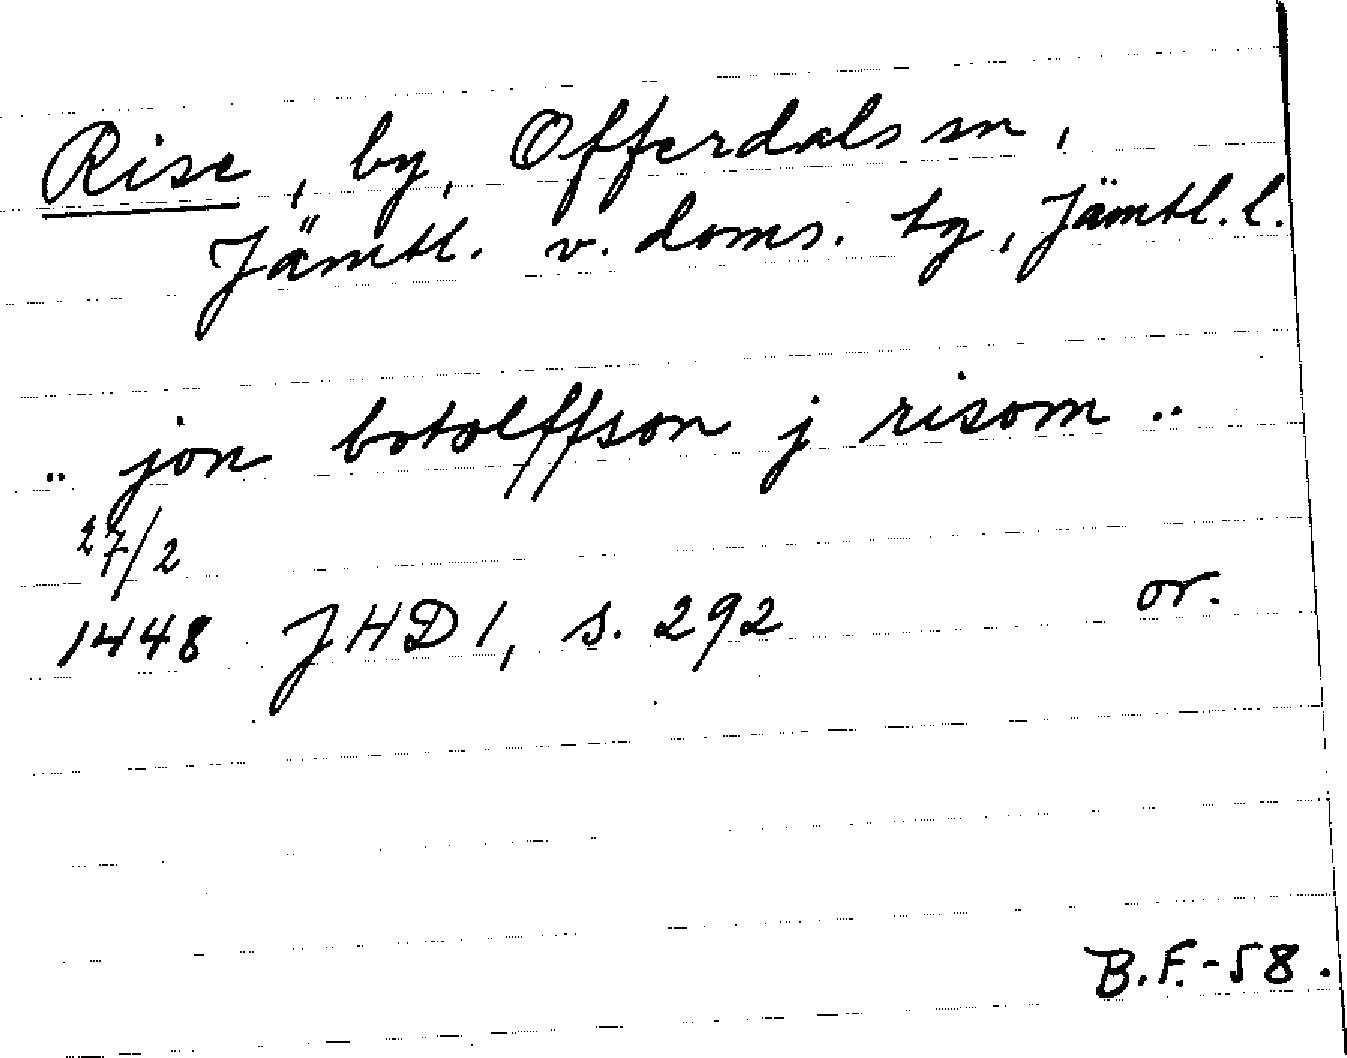 Rise, by, Offerdals sn,
Jämtl. v. doms. tg, Jämtl. l.
.. jon botolffson j risom ..
27/2
1448 JHD 1, s. 292 or.
B.F.-58.